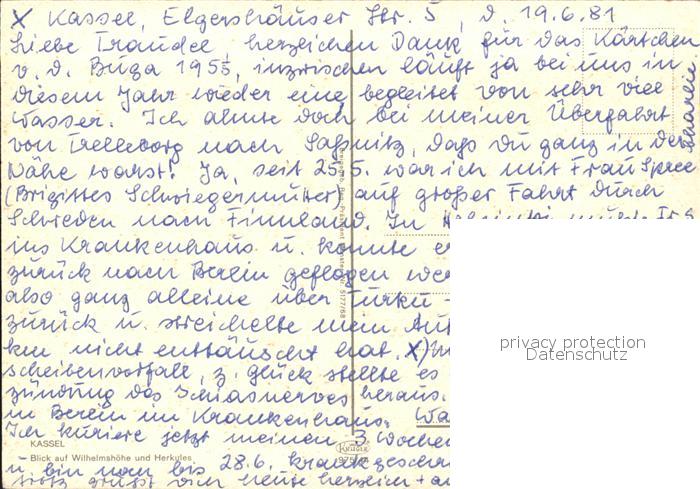 x Kassel, Elgershäuser Str. 5, d. 19.6.81
Liebe Traudel, herzlichen Dank für das Kärtchen
v. d. Buga 1955, inzwischen läuft ja bei uns in
diesem Jahr wieder eine, begleitet von sehr viel
Wasser. Ich ahnte doch bei meiner Überfahrt
von Trelleborg nach Saßnitz, daß du ganz in der
Nähe warst! Ja, seit 25.5. war ich mit Frau Spree
(Brigittes Schwiegermutter) auf großer Fahrt durch
Schweden nach Finnland. In Helsinki mußte
ins Krankenhaus u. konnte
zurück nach Berlin geflogen
also ganz alleine über Turku -
zurück u. streichelte mein
nicht enttäuscht hat. x)
scheibenvorfall, z. Glück stellte es
zündung des Ischiasnerves heraus.
in Berlin im Krankenhaus.
Ich kuriere jetzt meinen 3 Wochen
KASSEL
Blick auf Wilhelmshöhe und Herkules
u. bin nun bis 28.6. krank
trotz grüßt dich heute herzlich
KRÜGER
privacy protection
Datenschutz